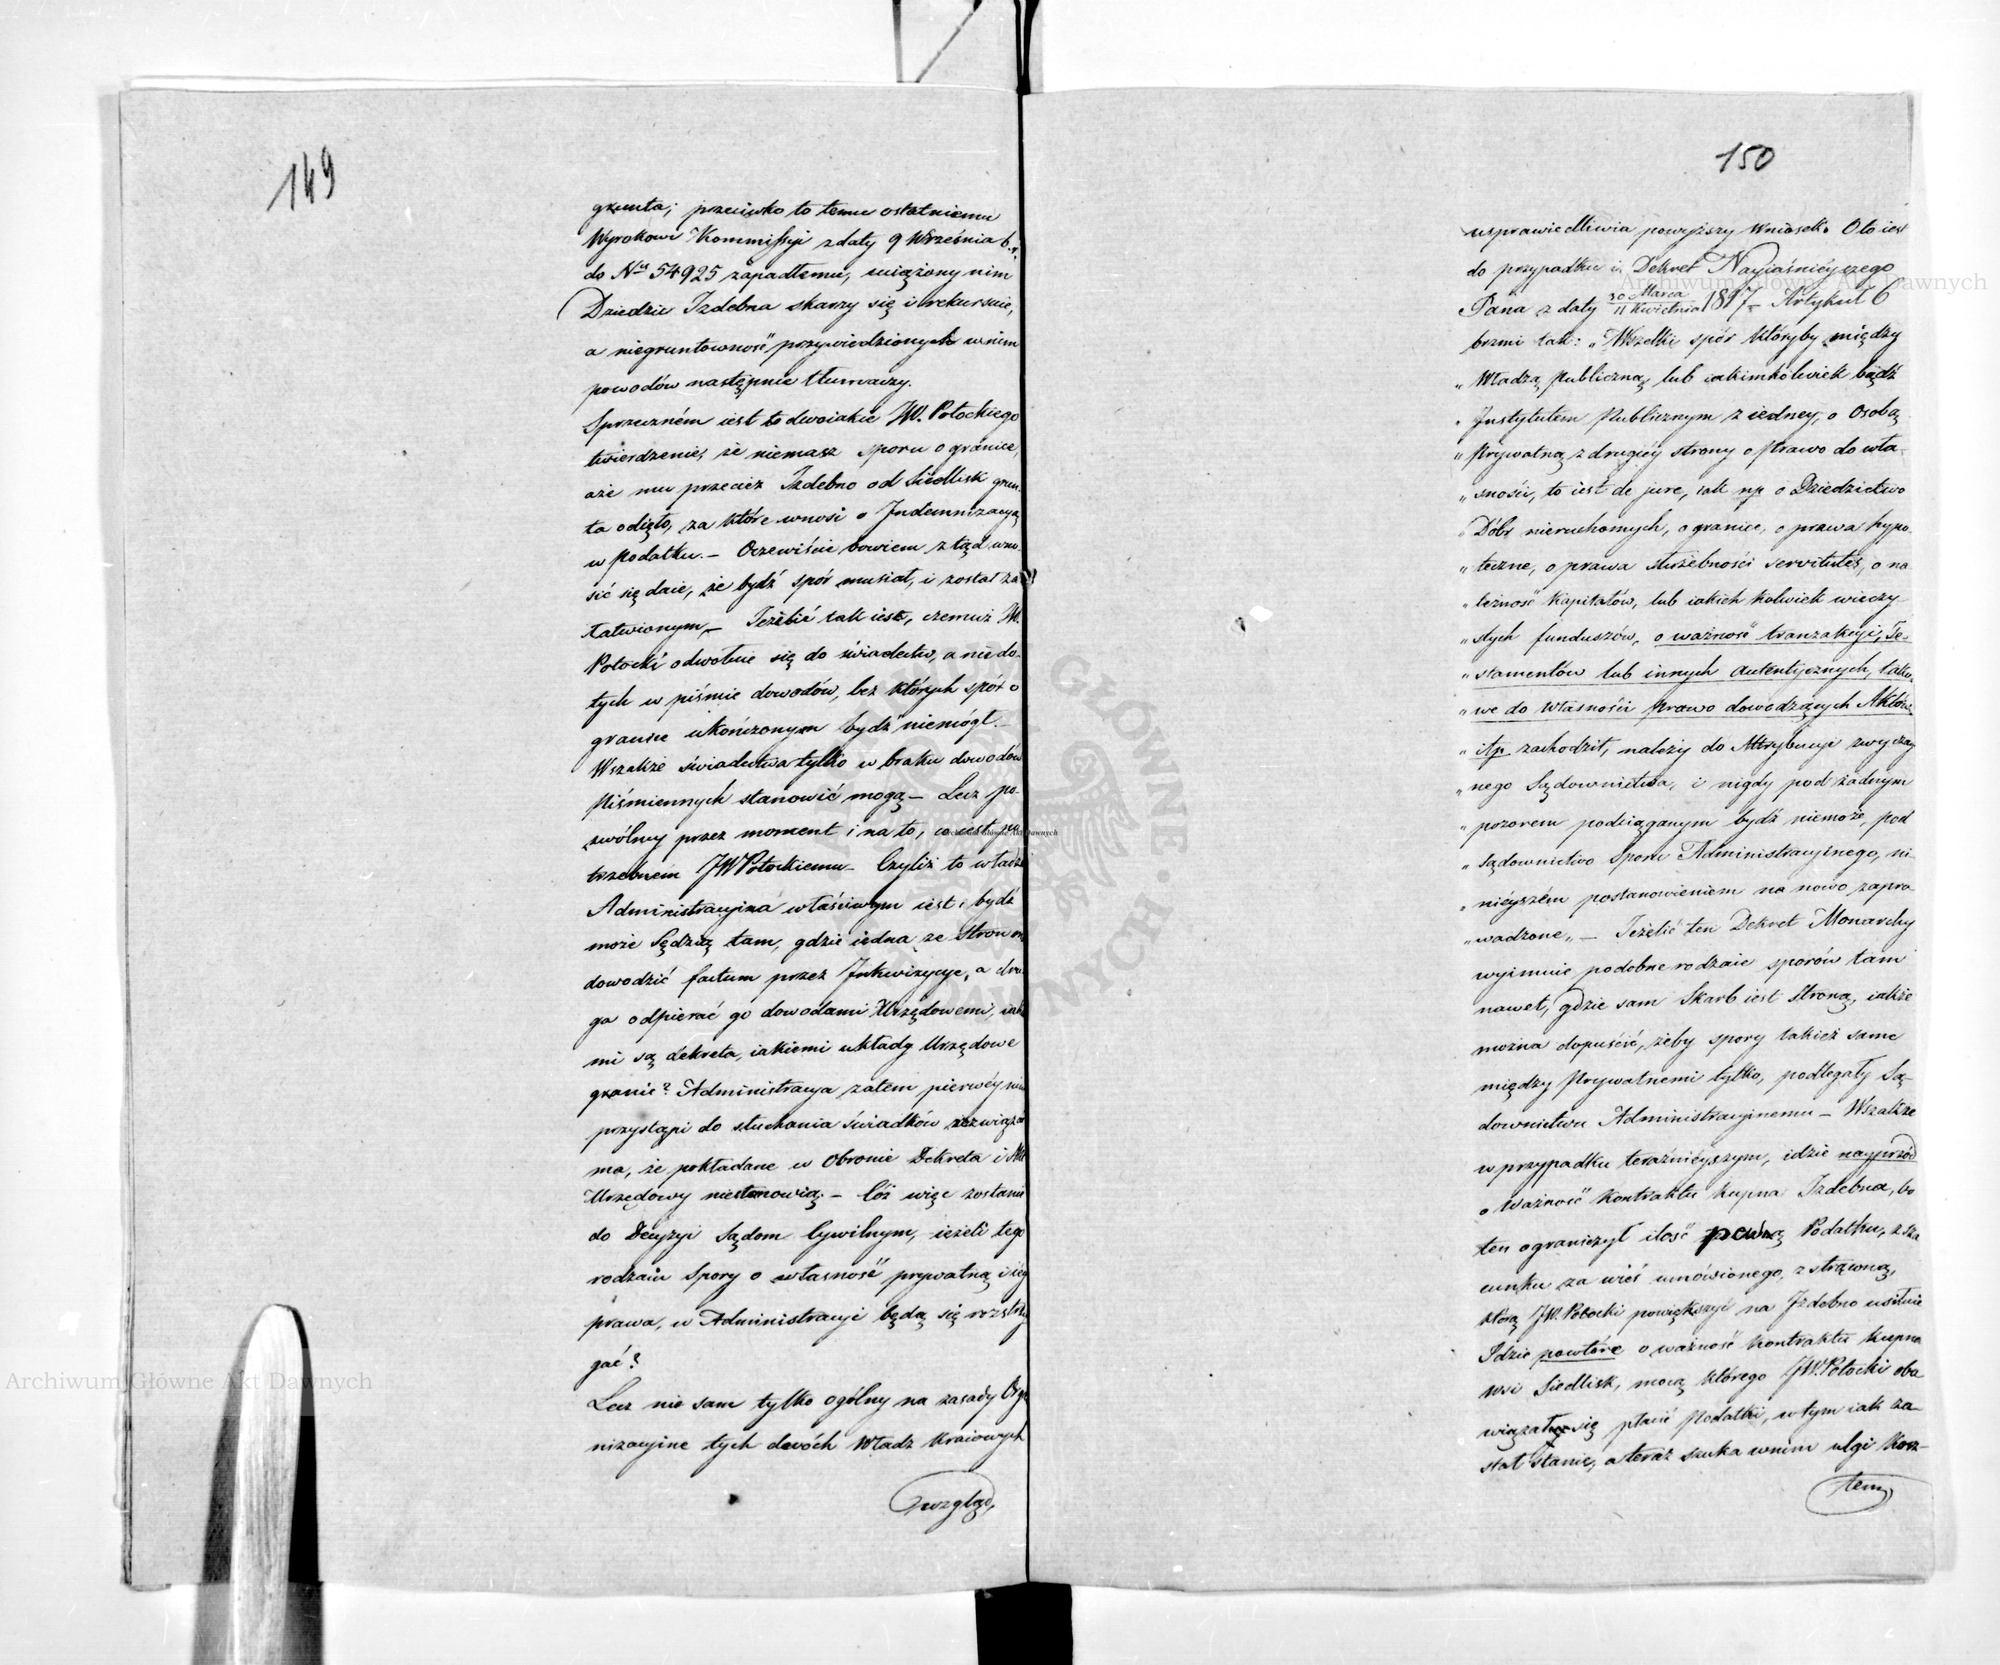 149
grunta; przeciwko to temu ostatniemu
Wyrokowi Kommissyi z daty 9 Września b.r.
do Nru 54925 zapadłemu, uciążony nim
Dziedzic Izdebna skarży się i rekursuie,
a niegruntowność przywiedzionych w nim
powodów następnie tłumaczy.
Sprzeczném iest to dwoiakie JW. Potockiego
twierdzenie, że niemasz sporu o granice,
aże mu przecież Izdebno od Siedlisk grun-
ta odięto, za które wnosi o Indemnizacyą
w Podatku. – Oczewiście bowiem ztąd wno-
sić się daie, że bydź spór musiał, i został za-
łatwionym, – Jeżeli tak iest, czemuż JW.
Potocki odwołuie się do świadectw, a nie do
tych w piśmie dowodów, bez których spór o
granice ukończonym bydź niemógł. –
Wszakże świadectwa tylko w braku dowodów
Piśmiennych stanowić mogą – Lecz po-
zwólmy przez moment i na to, co iest po-
trzebném JW Potockiemu – Czyliż to władza
Administracyina właściwym iest, i bydź
może Sędzią tam, gdzie iedna ze Stron ma
dowodzić factum przez Inkwizycye, a dru-
ga odpierać go dowodami Urzędowemi, iakie-
mi są dekreta, iakiemi układy Urzędowe
granic? Administracya zatem pierwéy nim
przystąpi do słuchania świadków rozwiązać
ma, że pokładane w Obronie Dekreta i Akt
Urzędowy niestanowią. – Cóż więc zostanie
do Decyzyi Sądom Cywilnym, ieżeli tego
rodzaiu Spory o własność prywatną i iéy
prawa, w Administracyi będą się rozstrzy-
gać?
Lecz nie sam tylko ogólny na zasady Orga-
nizacyine tych dwóch Władz Kraiowych
wzgląd,
150
usprawiedliwia powyższy Wniosek. Oto iest
do przypadku i. Dekret Nayiaśnieyszego
Pana z daty 30 Marca / 11 Kwietnia 1817 – Artykuł 6
brzmi tak: „Wszelki spór któryby między
„ Władzą Publiczną, lub iakimkolwiek bądź
„ Instytutem Publicznym z iedney, o Osobą
„ Prywatną z drugiéy strony o Prawo do wła-
„ sności, to iest de jure, iak np o Dziedzictwo
„ Dóbr nieruchomych, o granice, o prawa hypo-
„ teczne, o prawa służebności servitutes, o na-
„ leżność Kapitałów, lub iakich kolwiek wieczy-
„ stych funduszów, o ważność tranzakcyi, Te-
„ stamentów lub innych autentycznych, tako-
„ we do Własności Prawo dowodzących Aktów,
„ itp. zachodził, należy do Attrybucyi zwyczay-
„ nego Sądownictwa, i nigdy pod żadnym
„ pozorem podciąganym bydź niemoże, pod
„ Sądownictwo Sporu Administracyinego, ni-
„ nieyszém postanowieniem na nowo zapro-
„ wadzone„ – Jeżelić ten Dekret Monarchy
wyimuie podobne rodzaie sporów tam
nawet, gdzie sam Skarb iest Stroną, iakże
można dopuścić, żeby spory takież same
między Prywatnemi tylko, podlegały Są-
downictwu Administracyinemu – Wszakże
w przypadku teraźnieyszym, idzie nayprzód
o Ważność Kontraktu kupna Izdebna, bo
ten ograniczył ilość pewną Podatku, z sza-
cunku za wieś umówionego, z strąconą,
którą JW. Potocki powiększyć na Izdebno usiłuie
Idzie powtóre o ważność Kontraktu kupna
wsi Siedlisk, mocą którego JW. Potocki obo-
wiązał się płacić Podatki, w tym iak za-
stał Stanie, a teraz szuka w nim ulgi Kosz-
tem